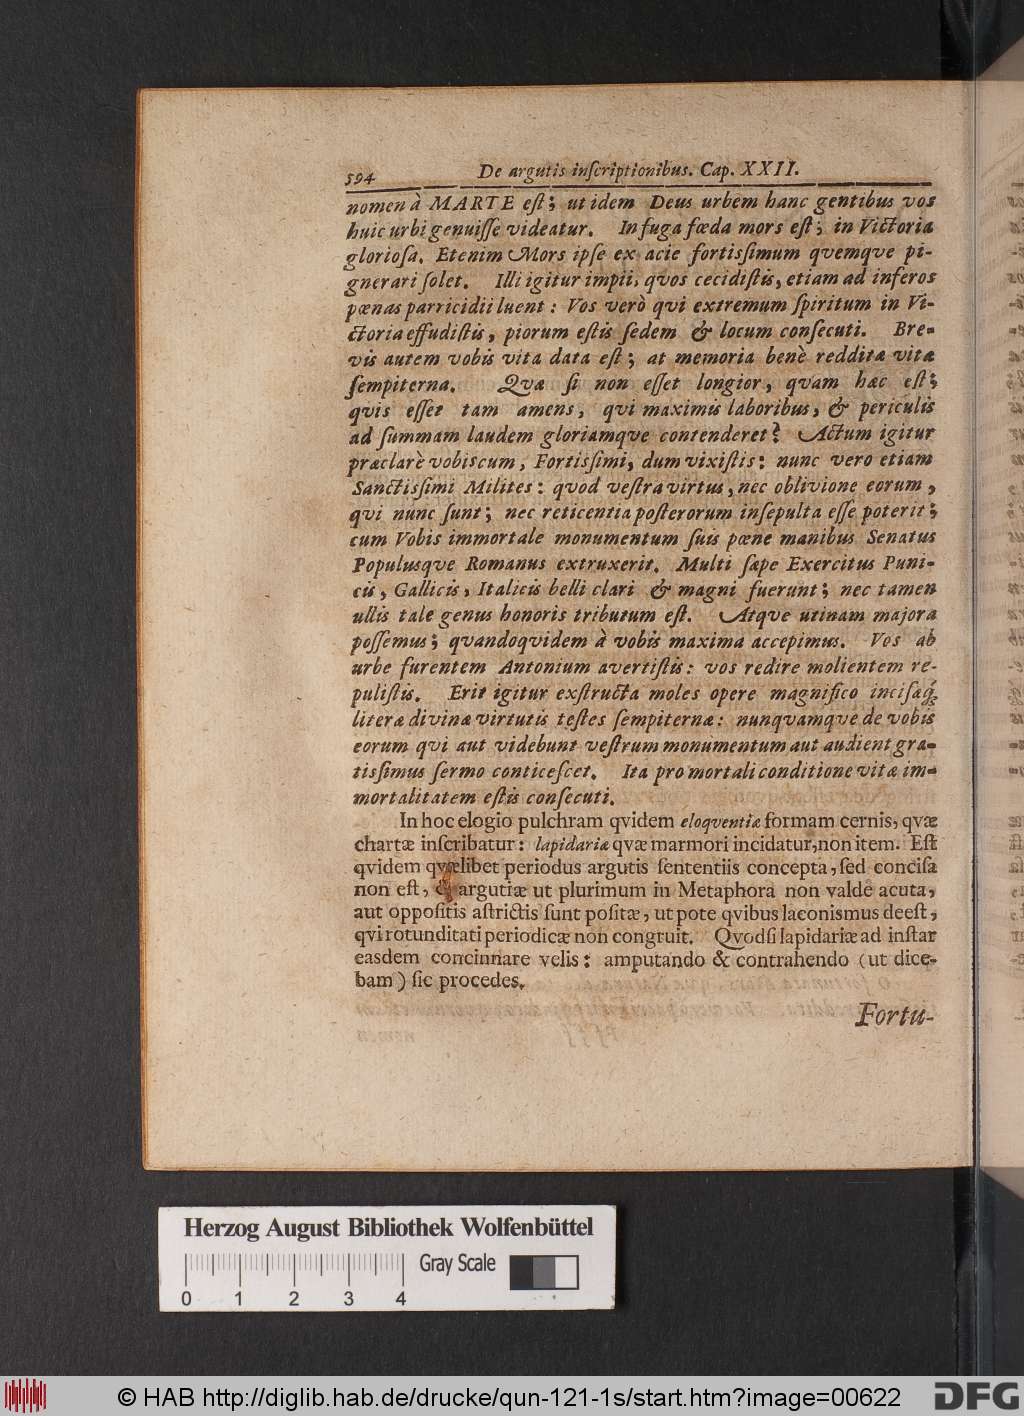 594 De argutis inſcriptionibus. Cap. XXII.
nomen à MARTE eſt; ut idem Deus urbem hanc gentibus vos
huic urbi genuiſſe videatur. In fuga fœda mors eſt; in Victoria
glorioſa. Etenim Mors ipſe ex acie fortisſimum qvemqve pi-
gnerari ſolet. Illi igitur impii, qvos cecidiſtis, etiam ad inferos
pœnas parricidii luent: Vos verò qvi extremum ſpiritum in Vi-
ctoria effudiſtis, piorum eſtis ſedem & locum conſecuti. Bre-
vis autem vobis vita data eſt; at memoria benè redditæ vitæ
ſempiterna. Qvæ ſi non eſſet longior, qvam hæc eſt;
qvis eſſet tam amens, qvi maximis laboribus, & periculis
ad ſummam laudem gloriamqve contenderet? Actum igitur
præclarè vobiscum, Fortisſimi, dum vixiſtis: nunc vero etiam
Sanctisſimi Milites: qvod veſtra virtus, nec oblivione eorum,
qvi nunc ſunt; nec reticentia poſterorum inſepulta eſſe poterit;
cum Vobis immortale monumentum ſuis pœne manibus Senatus
Populusqve Romanus extruxerit. Multi ſæpe Exercitus Puni-
cis, Gallicis, Italicis belli clari & magni fuerunt; nec tamen
ullis tale genus honoris tributum eſt. Atqve utinam majora
poſſemus; qvandoqvidem à vobis maxima accepimus. Vos ab
urbe furentem Antonium avertiſtis: vos redire molientem re-
puliſtis. Erit igitur exſtructa moles opere magnifico inciſaq́;
literæ divinæ virtutis teſtes ſempiternæ: nunqvamqve de vobis
eorum qvi aut videbunt veſtrum monumentum aut audient gra-
tisſimus ſermo conticeſcet. Ita pro mortali conditione vitæ im-
mortalitatem eſtis conſecuti.
In hoc elogio pulchram qvidem eloqventiæ formam cernis, qvæ
chartæ inſcribatur: lapidariæ qvæ marmori incidatur, non item. Eſt
qvidem qvælibet periodus argutis ſententiis concepta, ſed conciſa
non eſt, & argutiæ ut plurimum in Metaphora non valde acuta,
aut oppoſitis aſtrictis ſunt poſitæ, ut pote qvibus laconismus deeſt,
qvi rotunditati periodicæ non congruit. Qvodſi lapidariæ ad inſtar
easdem concinnare velis: amputando & contrahendo (ut dice-
bam) ſic procedes.
Fortu-
Herzog August Bibliothek Wolfenbüttel
Gray Scale
0 1 2 3 4
© HAB http://diglib.hab.de/drucke/qun-121-1s/start.htm?image=00622
DFG